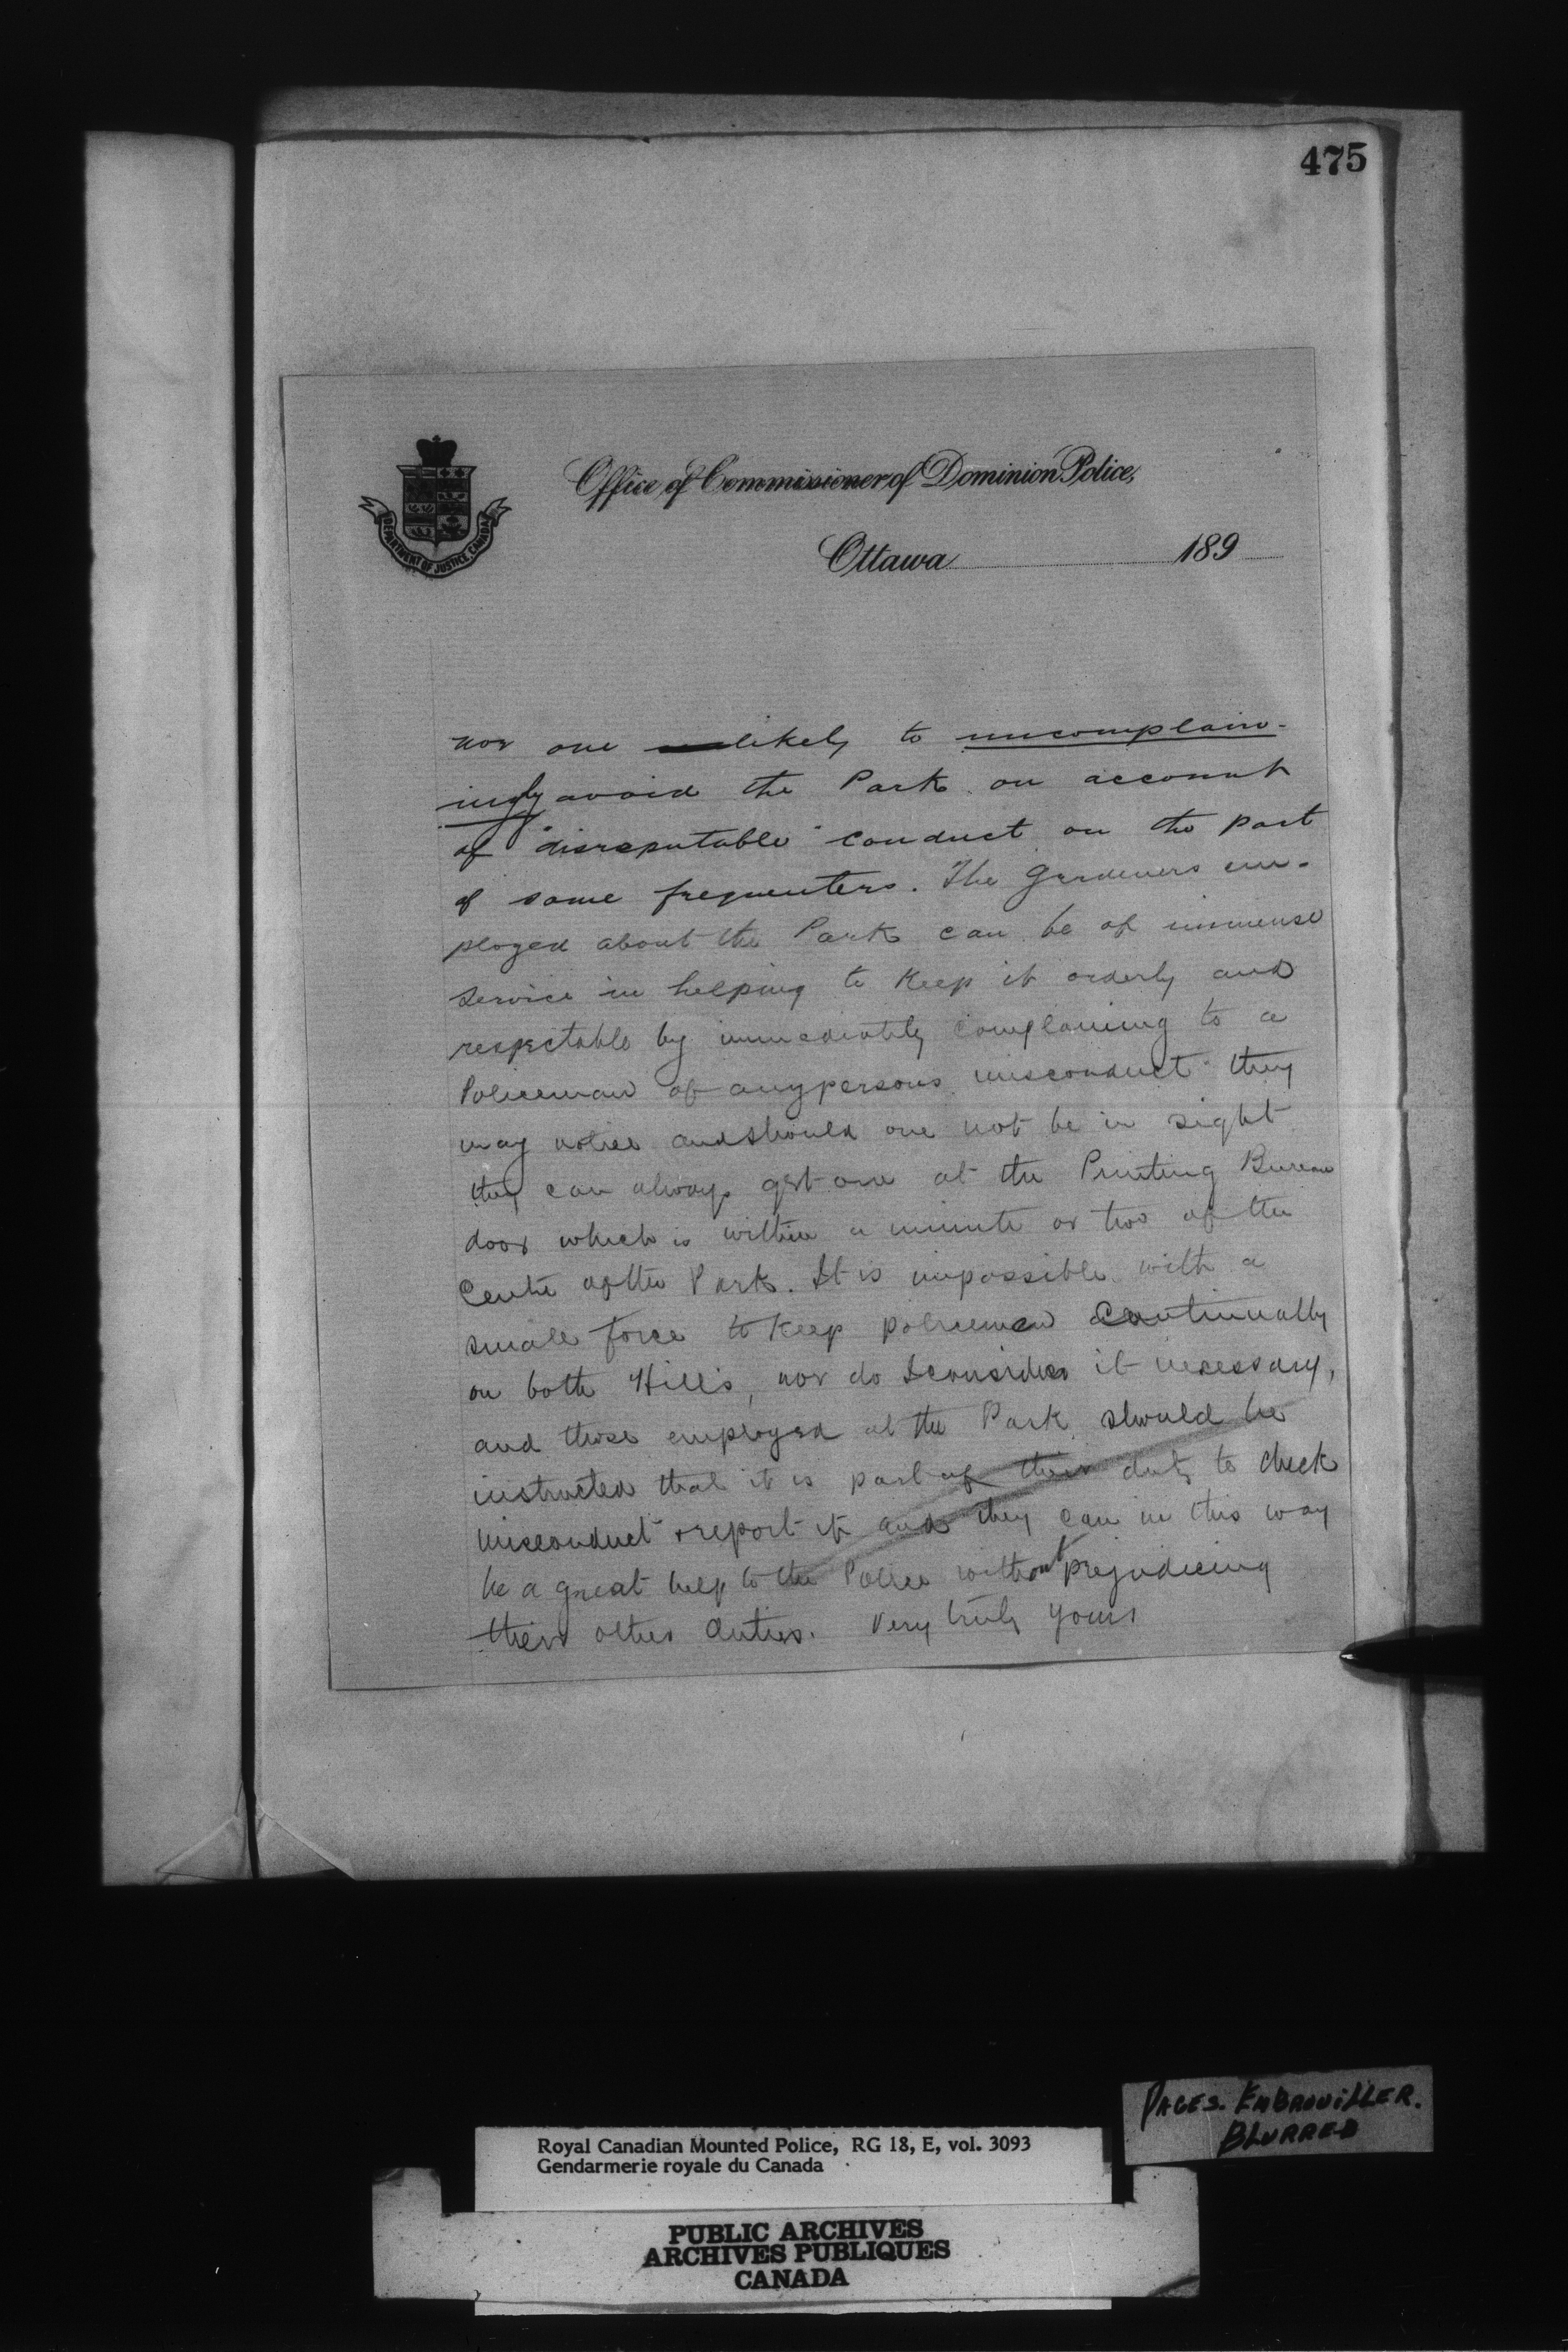 475
DEPARTMENT OF JUSTICE, CANADA
Office of Commissioner of Dominion Police,
Ottawa 189
nor one likely to uncomplain-
ingly avoid the Park on account
of "disreputable" conduct on the part
of some frequenters. The Gardeners em-
ployed about the Park can be of immense
service in helping to keep it orderly and
respectable by immediately complaining to a
Policeman of any persons misconduct they
may notice and should one not be in sight
they can always get one at the Printing Bureau
door which is within a minute or two of the
Centre of the Park. It is impossible with a
small force to keep policemen continually
on both Hills, nor do I consider it necessary,
and those employed at the Park should be
instructed that it is part of their duty to check
misconduct & report it and they can in this way
be a great help to the Police without prejudicing
their other duties. Very truly yours
PAGES. EMBROUILLER.
BLURRED
Royal Canadian Mounted Police, RG 18, E, vol. 3093
Gendarmerie royale du Canada
PUBLIC ARCHIVES
ARCHIVES PUBLIQUES
CANADA